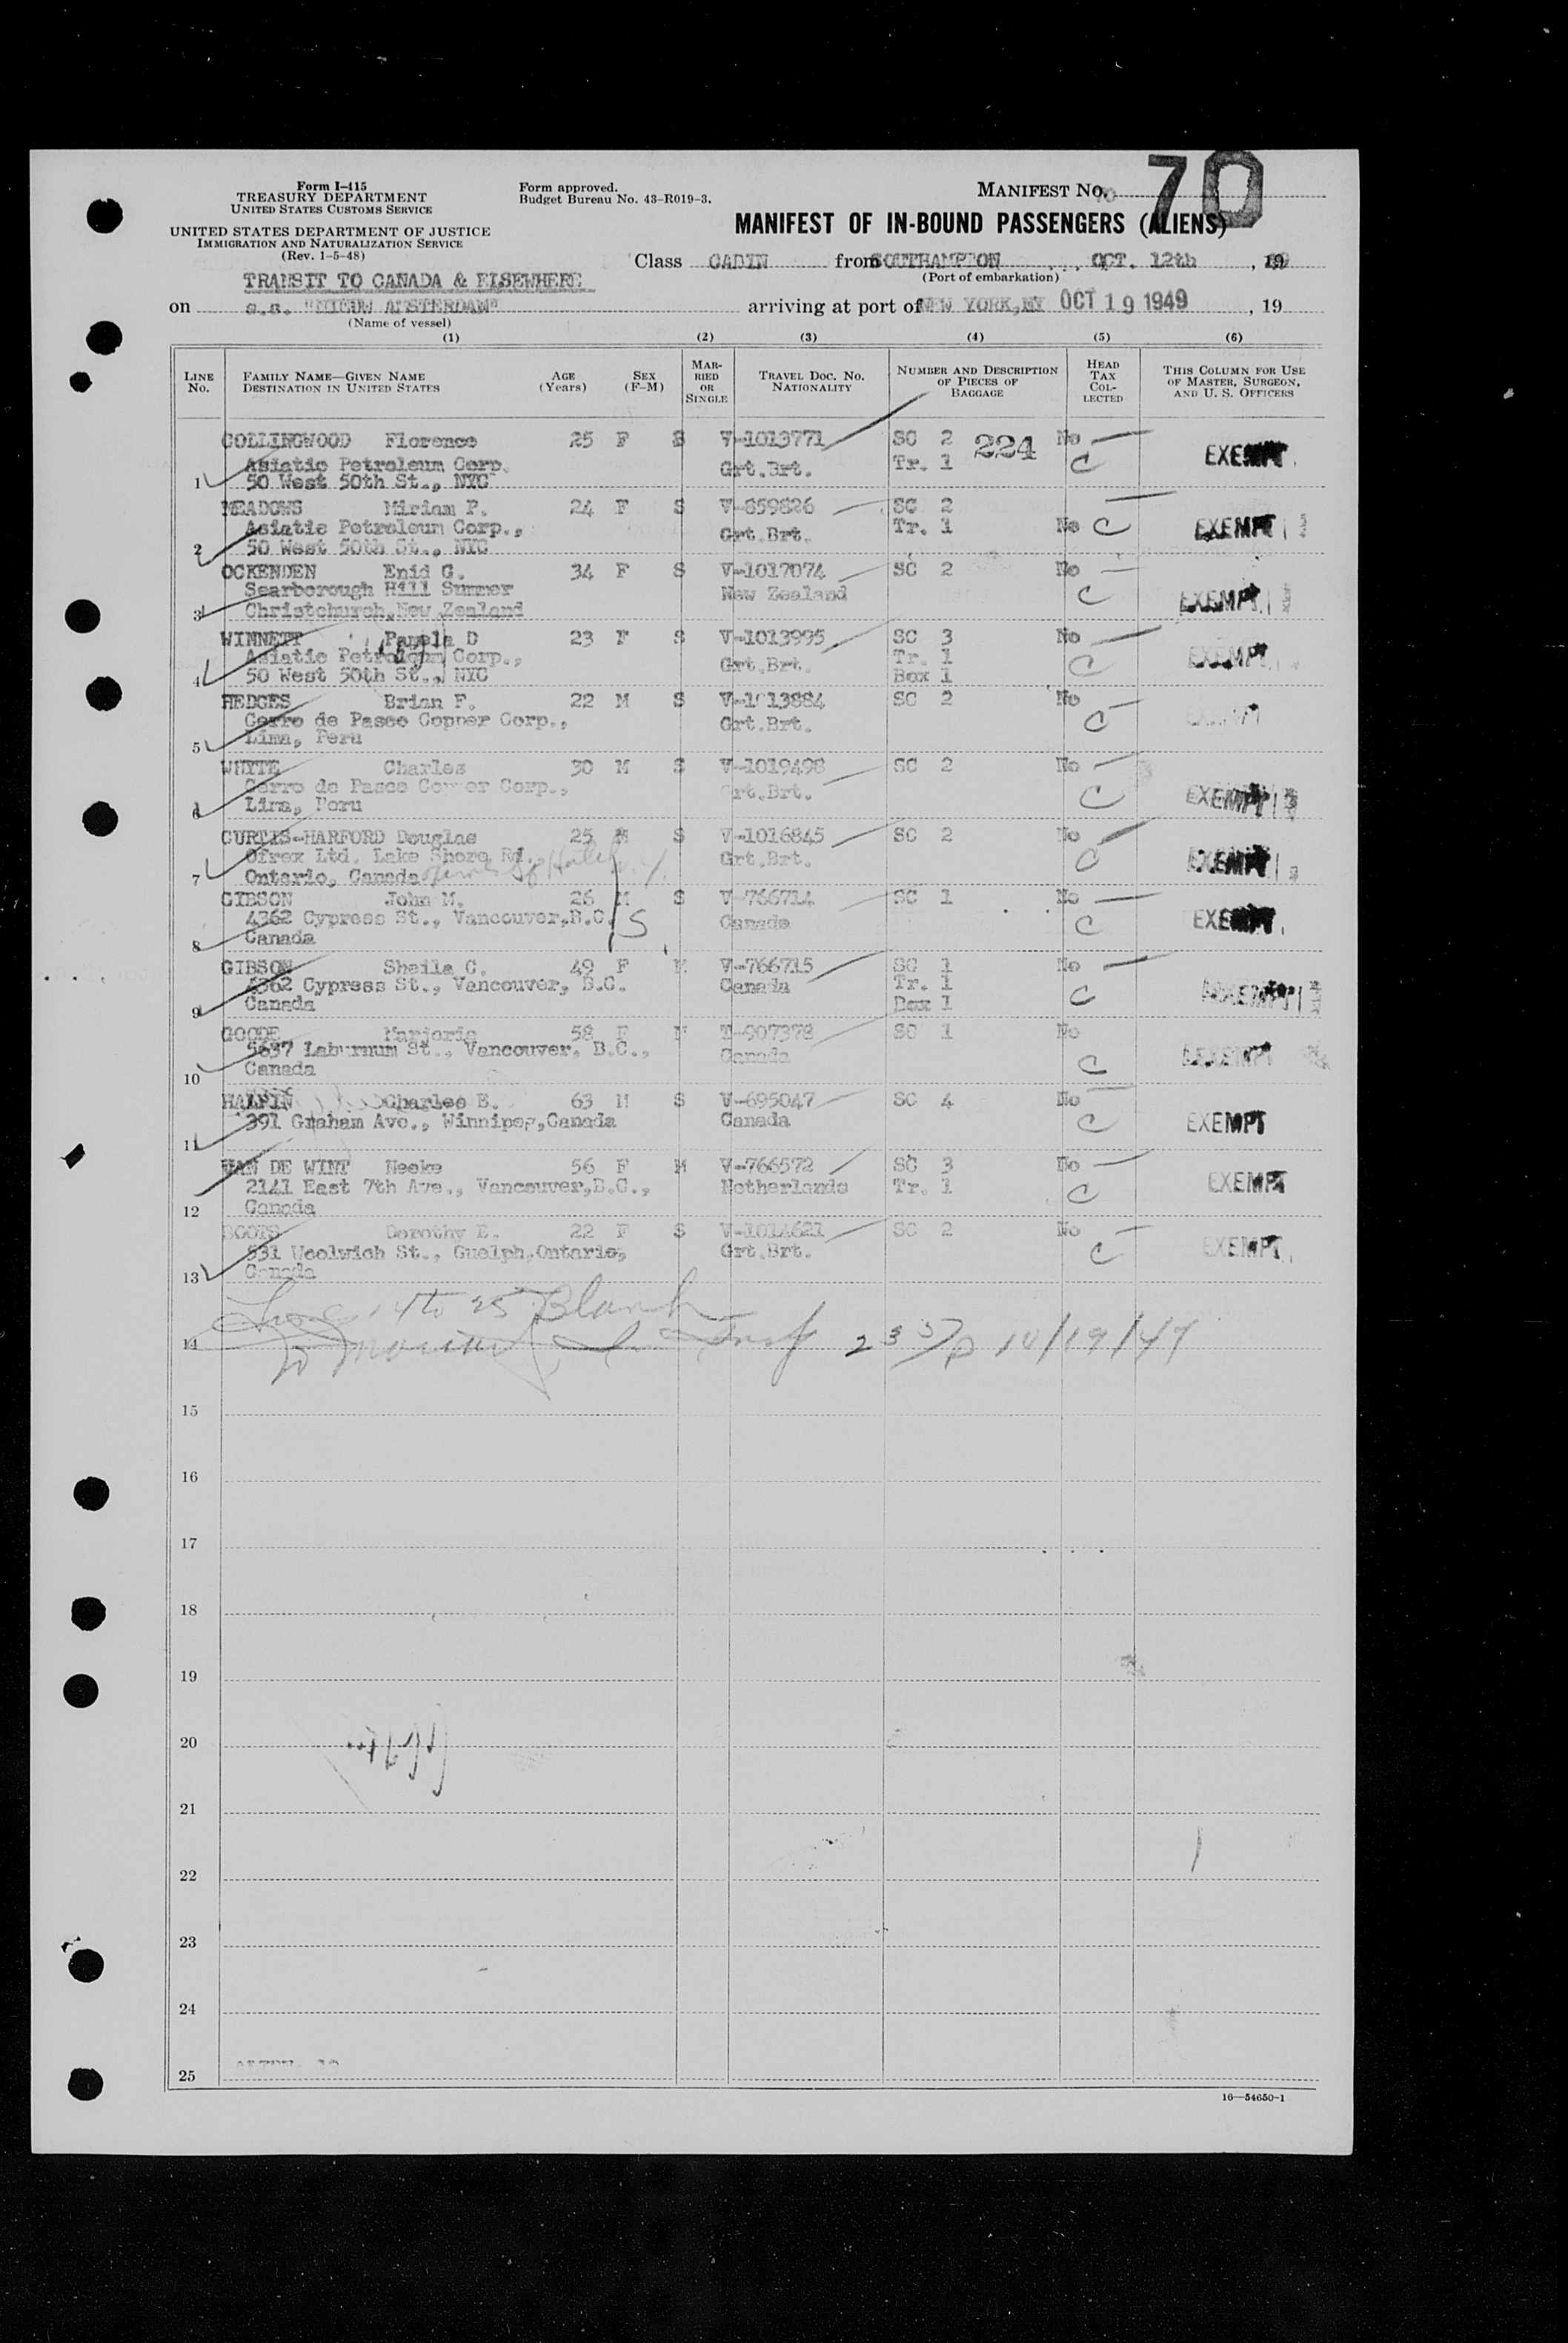 70
Form I-415
TREASURY DEPARTMENT
UNITED STATES CUSTOMS SERVICE
UNITED STATES DEPARTMENT OF JUSTICE
IMMIGRATION AND NATURALIZATION SERVICE
(Rev. 1-5-48)
Form approved.
Budget Bureau No. 43-R019-3.
MANIFEST No. 70
MANIFEST OF IN-BOUND PASSENGERS (ALIENS)
Class CABIN from SOUTHAMPTON, OCT. 12th, 19
(Port of embarkation)
TRANSIT TO CANADA & ELSEWHERE
on s.s. "NIEUW AMSTERDAM" arriving at port of NEW YORK, NY OCT 19 1949, 19
(Name of vessel)
(1) (2) (3) (4) (5) (6)
LINE No. FAMILY NAME—GIVEN NAME DESTINATION IN UNITED STATES AGE (Years) SEX (F-M) MARRIED OR SINGLE TRAVEL DOC. NO. NATIONALITY NUMBER AND DESCRIPTION OF PIECES OF BAGGAGE HEAD TAX COLLECTED THIS COLUMN FOR USE OF MASTER, SURGEON, AND U. S. OFFICERS
COLLINGWOOD Florence 25 F S V-1013771 SC 2 224 No
Asiatic Petroleum Corp. Grt.Brt. Tr. 1 C EXEMPT
1 50 West 50th St., NYC
MEADOWS Miriam P. 24 F S V-859826 SC 2
Asiatic Petroleum Corp., Grt.Brt. Tr. 1 No C EXEMPT
2 50 West 50th St., NYC
OCKENDEN Enid G. 34 F S V-1017074 SC 2 No
Scarborough Hill Sumner New Zealand C EXEMPT
3 Christchurch, New Zealand
WINNETT Pamela D 23 F S V-1013995 SC 3 No
Asiatic Petroleum Corp., Grt.Brt. Tr. 1 C EXEMPT
4 50 West 50th St., NYC Box 1
HEDGES Brian F. 22 M S V-1013884 SC 2 No
Cerro de Pasco Copper Corp., Grt.Brt. C EXEMPT
5 Lima, Peru
WHYTE Charles 30 M S V-1019498 SC 2 No
Cerro de Pasco Copper Corp., Grt.Brt. C EXEMPT
6 Lima, Peru
CURTIS-HARFORD Douglas 25 M S V-1016845 SC 2 No
Ofrex Ltd. Lake Shore Rd. Grt.Brt. C EXEMPT
7 Ontario, Canada
GIBSON John M. 26 M S V-766714 SC 1 No
4362 Cypress St., Vancouver, B.C. S Canada C EXEMPT
8 Canada
GIBSON Sheila C. 49 F M V-766715 SC 1 No
4362 Cypress St., Vancouver, B.C. Canada Tr. 1 C EXEMPT
9 Canada Box 1
GOODE Marjorie 58 F M T-907378 SC 1 No
5637 Laburnum St., Vancouver, B.C., Canada C EXEMPT
10 Canada
HALPIN Charles E. 63 M S V-695047 SC 4 No
391 Graham Ave., Winnipeg, Canada Canada C EXEMPT
11
VAN DE WINT Neeke 56 F M V-766572 SC 3 No
2141 East 7th Ave., Vancouver, B.C., Netherlands Tr. 1 C EXEMPT
12 Canada
Dorothy E. 22 F S V-1014621 SC 2 No
531 Woolwich St., Guelph, Ontario, Grt.Brt. C EXEMPT
13 Canada
Lines 14 to 25 Blank
14 235 p 10/19/49
15
16
17
18
19
20
21
22
23
24
25
16—54650-1